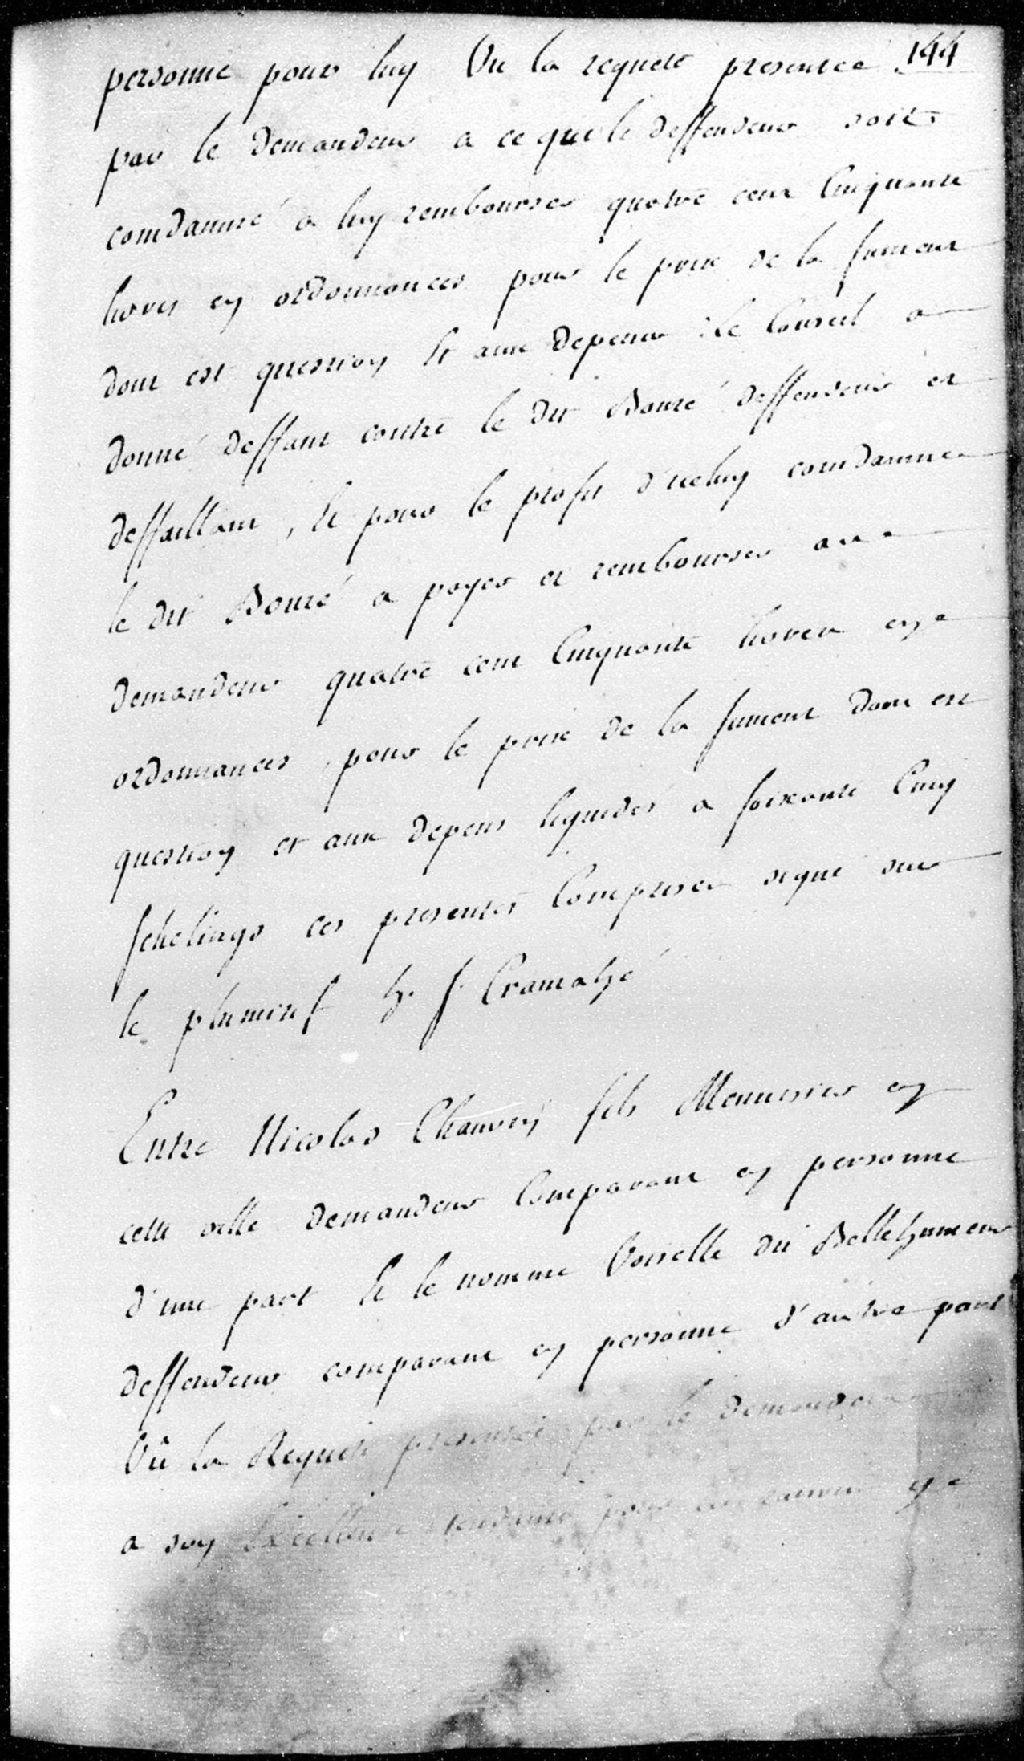 144
personne pour luy Vu la requete presentee
par le demandeur a ce que le deffendeur soit
comdamné a luy rembourser quatre cent Cinquante
livres en ordonnances pour le prix de la jument
dont est question Et aux depens : Le Conseil a
donné deffaut contre le dit Bouré deffendeur et
deffaillant, Et pour le profit d'iceluy comdamne
le dit Bouré a payer et rembourser au
demandeur quatre cent Cinquante livres en
ordonnances pour le prix de la jument dont est
question et aux depens liquidés a soixante Cinq
schelings ces presentes Comprises signé sur
le plumitif h. J. Cramahé
Entre Nicolas Chauvin fils Menusier en
cette ville demandeur Comparant en personne
d'une part Et le nommé Voiselle dit Bellehumeur
deffendeur comparant en personne d'autre part
Vû la Requete presentée par le demandeur
a son Excellence tendante pour les raisons